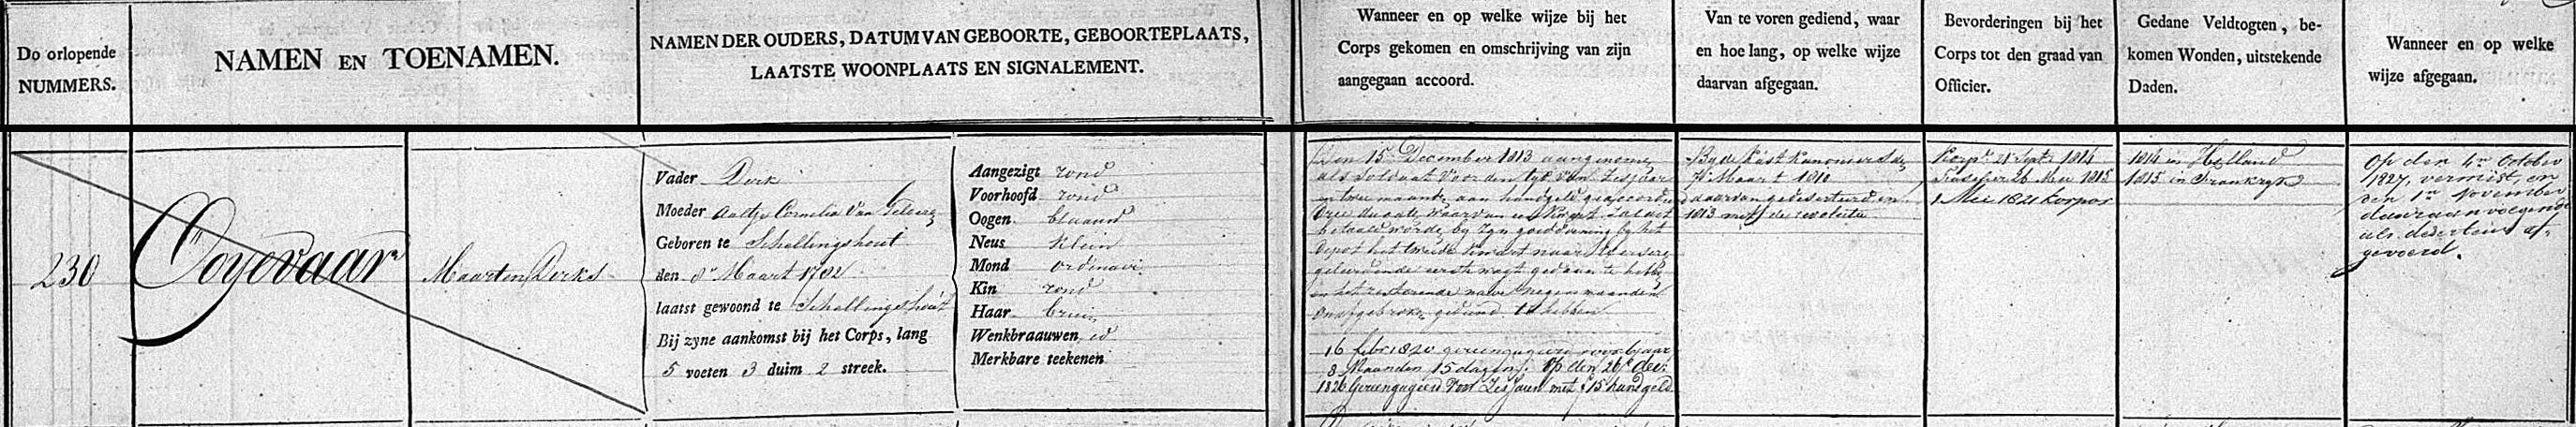 Do orlopende
NUMMERS.
NAMEN EN TOENAMEN.
NAMEN DER OUDERS, DATUM VAN GEBOORTE, GEBOORTEPLAATS,
LAATSTE WOONPLAATS EN SIGNALEMENT.
Wanneer en op welke wijze bij het
Corps gekomen en omschrijving van zijn
aangegaan accoord.
Van te voren gediend, waar
en hoe lang, op welke wijze
daarvan afgegaan.
Bevorderingen bij het
Corps tot den graad van
Officier.
Gedane Veldtogten, be-
komen Wonden, uitstekende
Daden.
Wanneer en op welke
wijze afgegaan.
230
Ooyevaar
Maarten Derks
Vader Derk
Moeder Aaltje Cornelia Van
Geboren te Schellingshout
den 8e Maart 1792
laatst gewoond te Schellingshout
Bij zyne aankomst bij het Corps, lang
5 voeten 3 duim 2 streek.
Aangezigt rond
Voorhoofd rond
Oogen blaauw
Neus klein
Mond ordinair
Kin rond
Haar bruin
Wenkbraauwen id
Merkbare teekenen
Den 15e December 1813 aangenomen
als Soldaat voor den tyd van Zesjaar
en twee maanden aan handgeld geaccordeerd
Drie ducate, waarvan een
betaald worde, by zyn goedkeuring by het
Depot het tweede
eerste wagt gedaan te hebben
en het resterende na negen maanden
onafgebroken gediend te hebben
16 febr 1820 gereengageerd voor 6 jaar
8 Maanden 15 dagen. Op den 26e Dec.
1826 Gereengageerd voor Zes Jaaren met f 15 handgeld
By de Kust Kanoniers den
Maart 1810
daarvan gedeserteerd in
1813 met de revolutie
Korpl 21 Sept 1814
Fuselier 26 Mei 1815
1 Mei 1821 Korpor
1814 in Holland
1815 in Frankryk
Op den 4en October
1827, vermist, en
den 1en November
daaraanvolgende
als deserteur af-
gevoerd.